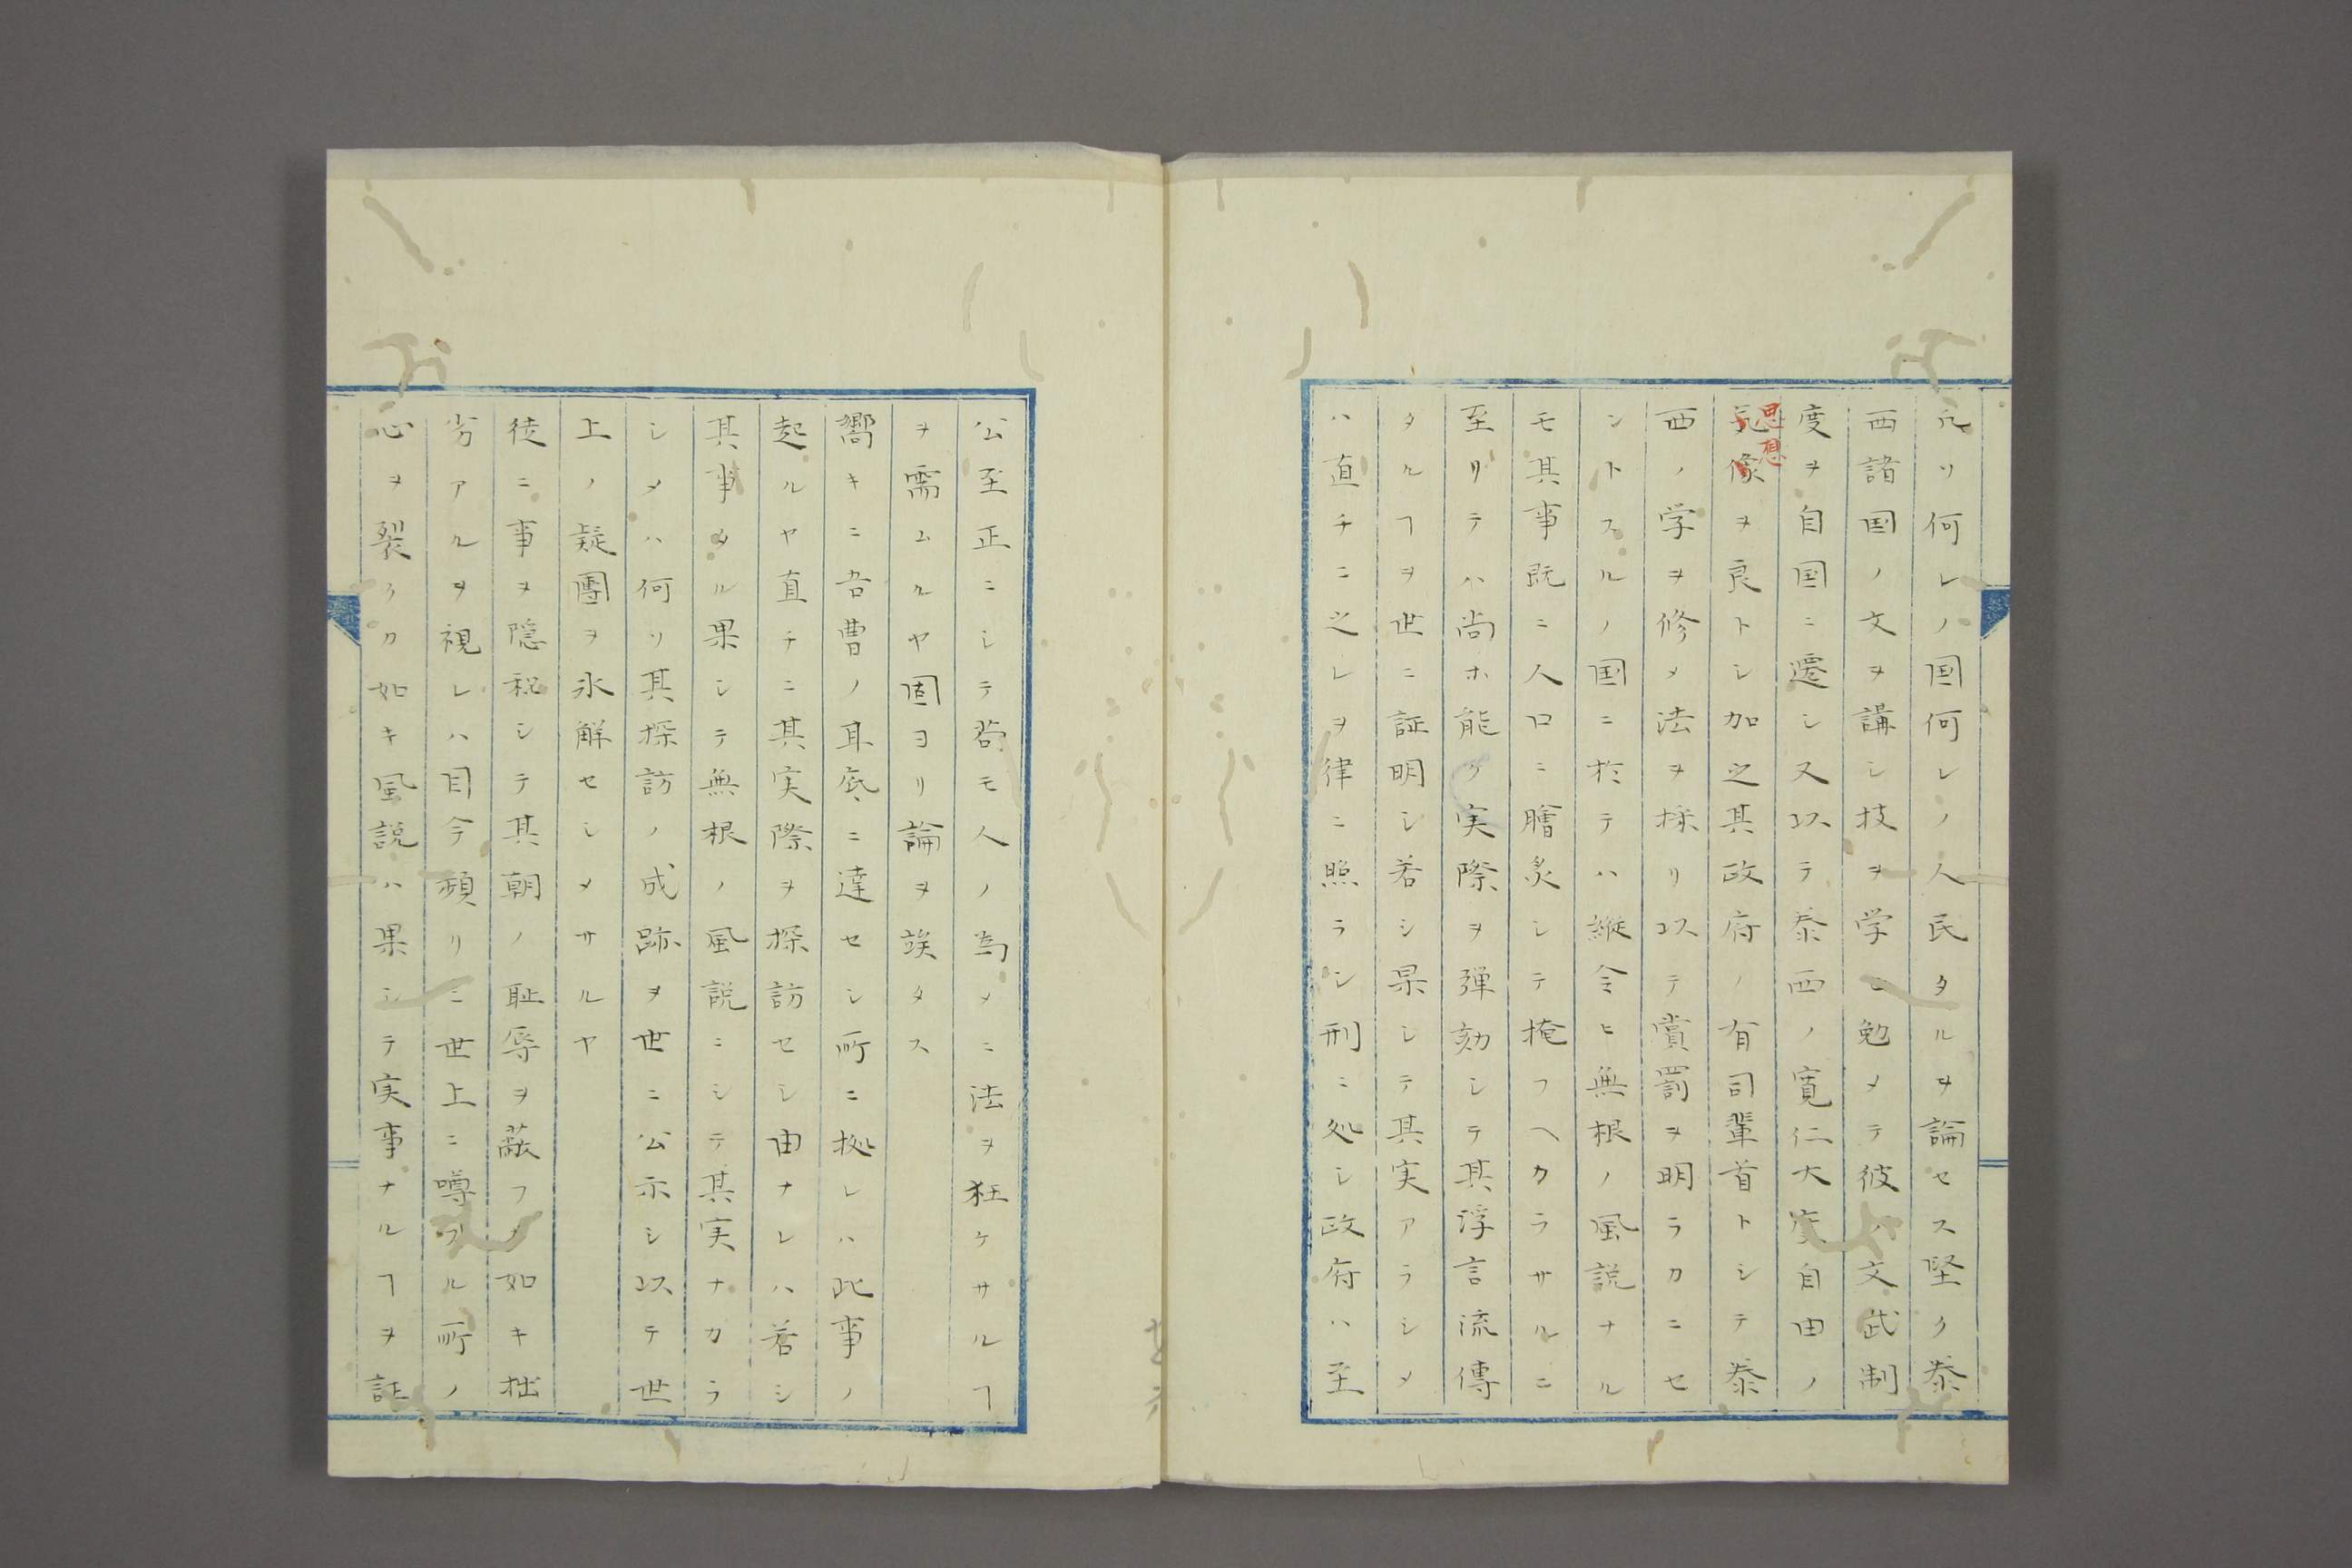 凡ソ何レノ国何レノ人民タルヲ論セス堅ク泰
西諸国ノ文ヲ講シ技ヲ学ヒ勉メテ彼ハ文武制
度ヲ自国ニ遷シ又以テ泰西ノ寛仁大度自由ノ
思想
気像ヲ良トシ加之其政府ノ有司輩首トシテ泰
西ノ学ヲ修メ法ヲ採リ以テ賞罰ヲ明ラカニセ
ントスルノ国ニ於テハ縦令ヒ無根ノ風説ナル
モ其事既ニ人口ニ膾炙シテ掩フヘカラサルニ
至リテハ尚ホ能ク実際ヲ弾劾シテ其浮言流傳
タルヿヲ世ニ証明シ若シ果シテ其実アラシメ
ハ直チニ之レヲ律ニ照ラシ刑ニ処シ政府ハ至
公至正ニシテ苟モ人ノ為メニ法ヲ狂ケサルヿ
ヲ需ムルヤ固ヨリ論ヲ竢タス
嚮キニ吾曹ノ耳底ニ達セシ所ニ拠レハ此事ノ
起ルヤ直チニ其実際ヲ探訪セシ由ナレハ若シ
其事タル果シテ無根ノ風説ニシテ其実ナカラ
シメハ何ソ其探訪ノ成跡ヲ世ニ公示シ以テ世
上ノ疑團ヲ氷解セシメサルヤ
徒ニ事ヲ隠秘シテ其朝ノ恥辱ヲ蔽フノ如キ拙
劣アルヲ視レハ目今頻リニ世上ニ噂スル所ノ
心ヲ裂クカ如キ風説ハ果シテ実事ナルヿヲ証